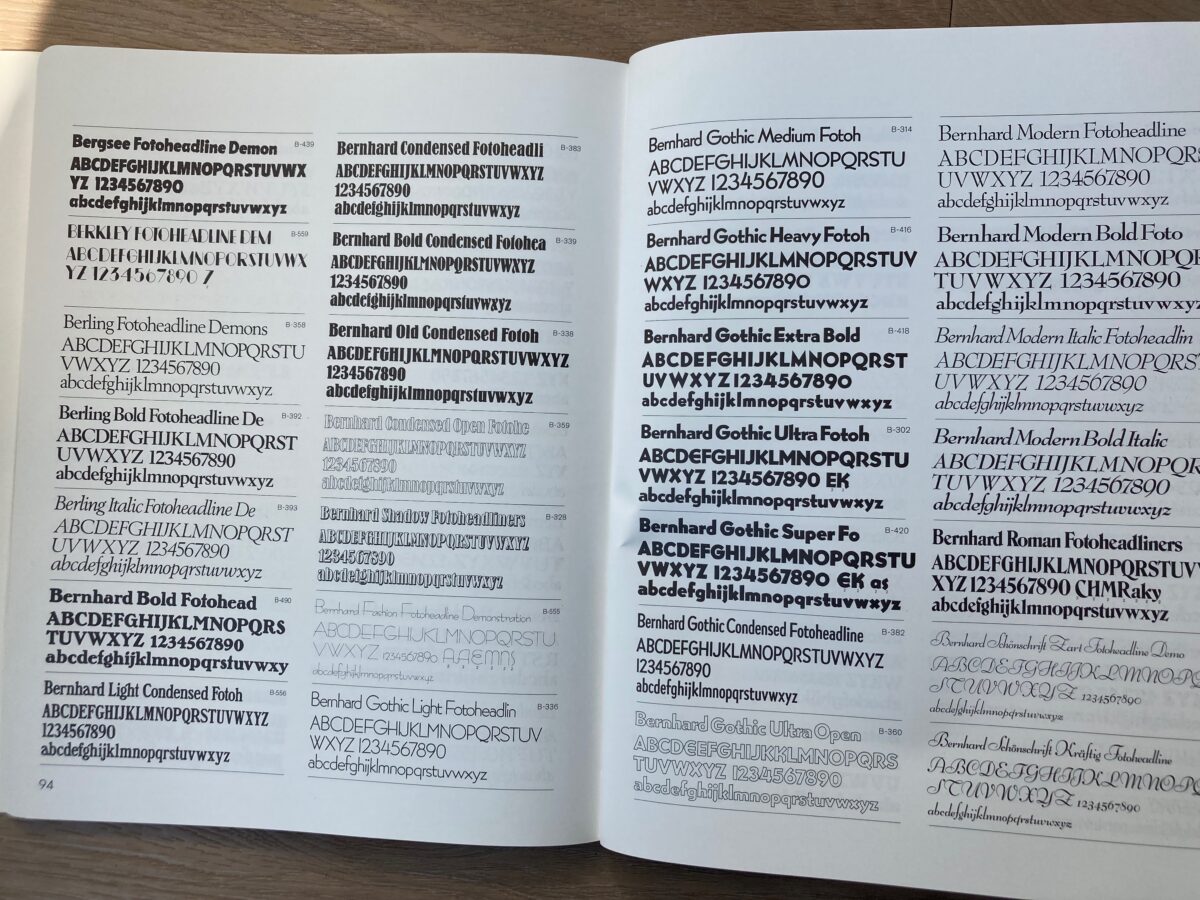 Bergsee Fotoheadline Demon B-439
ABCDEFGHIJKLMNOPQRSTUVWX
YZ 1234567890
abcdefghijklmnopqrstuvwxyz
BERKLEY FOTOHEADLINE DEM B-559
ABCDEFGHIJKLMNOPQRSTUVWX
YZ 1234567890 Z
Berling Fotoheadline Demons B-358
ABCDEFGHIJKLMNOPQRSTU
VWXYZ 1234567890
abcdefghijklmnopqrstuvwxyz
Berling Bold Fotoheadline De B-392
ABCDEFGHIJKLMNOPQRST
UVWXYZ 1234567890
abcdefghijklmnopqrstuvwxyz
Berling Italic Fotoheadline De B-393
ABCDEFGHIJKLMNOPQRST
UVWXYZ 1234567890
abcdefghijklmnopqrstuvwxyz
Bernhard Bold Fotohead B-490
ABCDEFGHIJKLMNOPQRS
TUVWXYZ 1234567890
abcdefghijklmnopqrstuvwxy
Bernhard Light Condensed Fotoh B-556
ABCDEFGHIJKLMNOPQRSTUVWXYZ
1234567890
abcdefghijklmnopqrstuvwxyz
94
Bernhard Condensed Fotoheadli B-383
ABCDEFGHIJKLMNOPQRSTUVWXYZ
1234567890
abcdefghijklmnopqrstuvwxyz
Bernhard Bold Condensed Fotohea B-339
ABCDEFGHIJKLMNOPQRSTUVWXYZ
1234567890
abcdefghijklmnopqrstuvwxyz
Bernhard Old Condensed Fotoh B-338
ABCDEFGHIJKLMNOPQRSTUVWXYZ
1234567890
abcdefghijklmnopqrstuvwxyz
Bernhard Condensed Open Fotohe B-359
ABCDEFGHIJKLMNOPQRSTUVWXYZ
1234567890
abcdefghijklmnopqrstuvwxyz
Bernhard Shadow Fotoheadliners B-328
ABCDEFGHIJKLMNOPQRSTUVWXYZ
1234567890
abcdefghijklmnopqrstuvwxyz
Bernhard Fashion Fotoheadline Demonstration B-555
ABCDEFGHIJKLMNOPQRSTU
VWXYZ 1234567890 AAEMNS
abcdefghijklmnopqrstuvwxyz
Bernhard Gothic Light Fotoheadlin B-336
ABCDEFGHIJKLMNOPQRSTUV
WXYZ 1234567890
abcdefghijklmnopqrstuvwxyz
Bernhard Gothic Medium Fotoh B-314
ABCDEFGHIJKLMNOPQRSTU
VWXYZ 1234567890
abcdefghijklmnopqrstuvwxyz
Bernhard Gothic Heavy Fotoh B-416
ABCDEFGHIJKLMNOPQRSTUV
WXYZ 1234567890
abcdefghijklmnopqrstuvwxyz
Bernhard Gothic Extra Bold B-418
ABCDEFGHIJKLMNOPQRST
UVWXYZ 1234567890
abcdefghijklmnopqrstuvwxyz
Bernhard Gothic Ultra Fotoh B-302
ABCDEFGHIJKLMNOPQRSTU
VWXYZ 1234567890 EK
abcdefghijklmnopqrstuvwxyz
Bernhard Gothic Super Fo B-420
ABCDEFGHIJKLMNOPQRSTU
VWXYZ 1234567890 EK as
abcdefghijklmnopqrstuvwxyz
Bernhard Gothic Condensed Fotoheadline B-382
ABCDEFGHIJKLMNOPQRSTUVWXYZ
1234567890
abcdefghijklmnopqrstuvwxyz
Bernhard Gothic Ultra Open B-360
ABCDEEFGHIJKKLMNOPQRS
TUVWXYZ 1234567890
abcdefghijklmnopqrstuvwxyz
Bernhard Modern Fotoheadline
ABCDEFGHIJKLMNOPQRS
UVWXYZ 1234567890
abcdefghijklmnopqrstuvwxyz
Bernhard Modern Bold Foto
ABCDEFGHIJKLMNOPQR
TUVWXYZ 1234567890
abcdefghijklmnopqrstuvwxyz
Bernhard Modern Italic Fotoheadlin
ABCDEFGHIJKLMNOPQRS
UVWXYZ 1234567890
abcdefghijklmnopqrstuvwxyz
Bernhard Modern Bold Italic
ABCDEFGHIJKLMNOPQR
TUVWXYZ 1234567890
abcdefghijklmnopqrstuvwxyz
Bernhard Roman Fotoheadliners
ABCDEFGHIJKLMNOPQRSTUVW
XYZ 1234567890 CHMRaky
abcdefghijklmnopqrstuvwxyz
Bernhard Schönschrift Zart Fotoheadline Demo
ABCDEFGHIJKLMNOPQ
RSTUVWXYZ 1234567890
abcdefghijklmnopqrstuvwxyz
Bernhard Schönschrift Kräftig Fotoheadline
ABCDEFGHIJKLMNOPQ
RSTUVWXYZ 1234567890
abcdefghijklmnopqrstuvwxyz